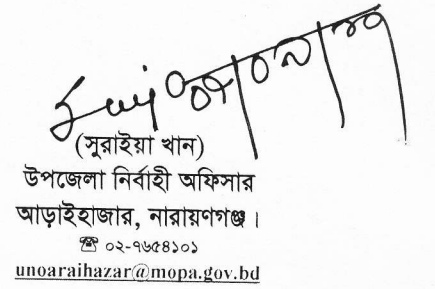 (সুরাইয়া খান)
উপজেলা নির্বাহী অফিসার
আড়াইহাজার, নারায়ণগঞ্জ ।
☎ ০২-৭৬৫৪১০১
unoaraihazar@mopa.gov.bd